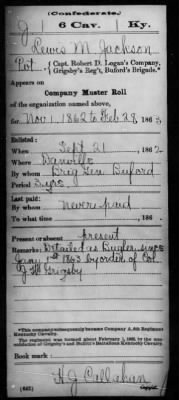 (Confederate.)
J 6 Cav. Ky.
Lewis M. Jackson
Pvt., Capt. Robert D. Logan's Company,
Grigsby's Reg't, Buford's Brigade.*
Appears on
Company Muster Roll
of the organization named above,
for Nov 1, 1862 to Feb 28, 1863
Enlisted:
When Sept 21, 1862
Where Danville
By whom Brig Gen Buford
Period 3 yrs.
Last paid:
By whom never paid
To what time , 186 .
Present or absent present
Remarks: Detailed as Bugler since
Jany 1863 by order of Col.
J W Grigsby
*This company subsequently became Company A, 6th Regiment
Kentucky Cavalry.
The regiment was formed about February 1, 1863, by the con-
solidation of Grigsby's and Butler's Battalions Kentucky Cavalry.
Book mark:
H. J. Callahan
(642) Copyist.